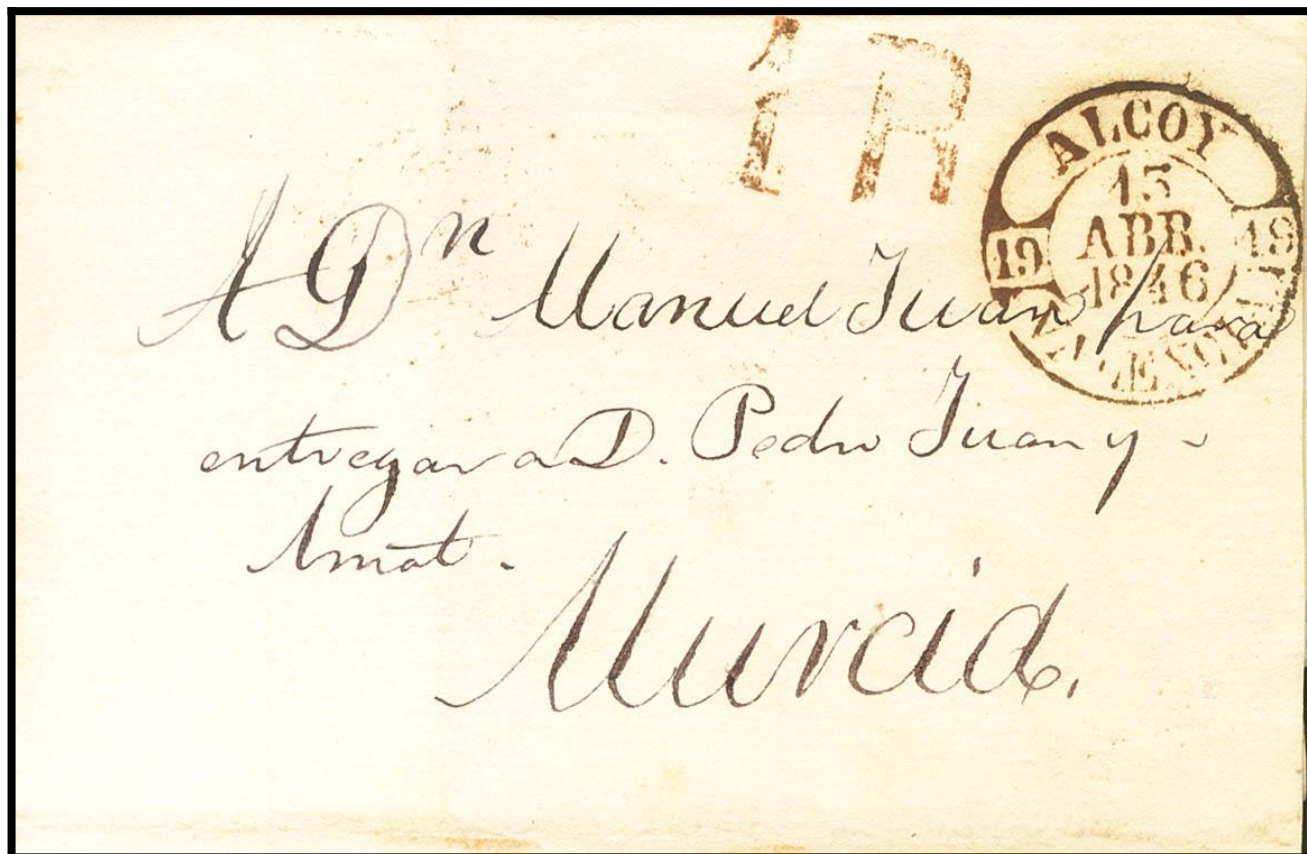 1R
ALCOY
19 15 19
ABR.
1846
VALENCIA
A Dn Manuel Juan para
entregar a D. Pedro Juan y
Amat.
Murcia.